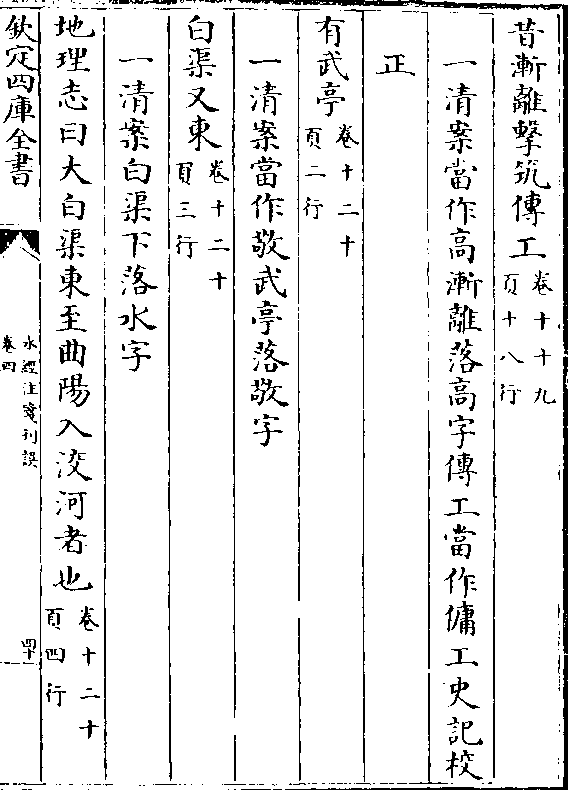 昔漸離擊筑傳工卷十十九頁十八行
一清案當作高漸離落高字傳工當作傭工史記校
正
有武亭卷十二十頁二行
一清案當作敬武亭落敬字
白渠又東卷十二十頁三行
一清案白渠下落水字
地理志曰大白渠東至曲陽入洨河者也卷十二十頁四行
欽定四庫全書
水經注箋刊誤
卷四
四十